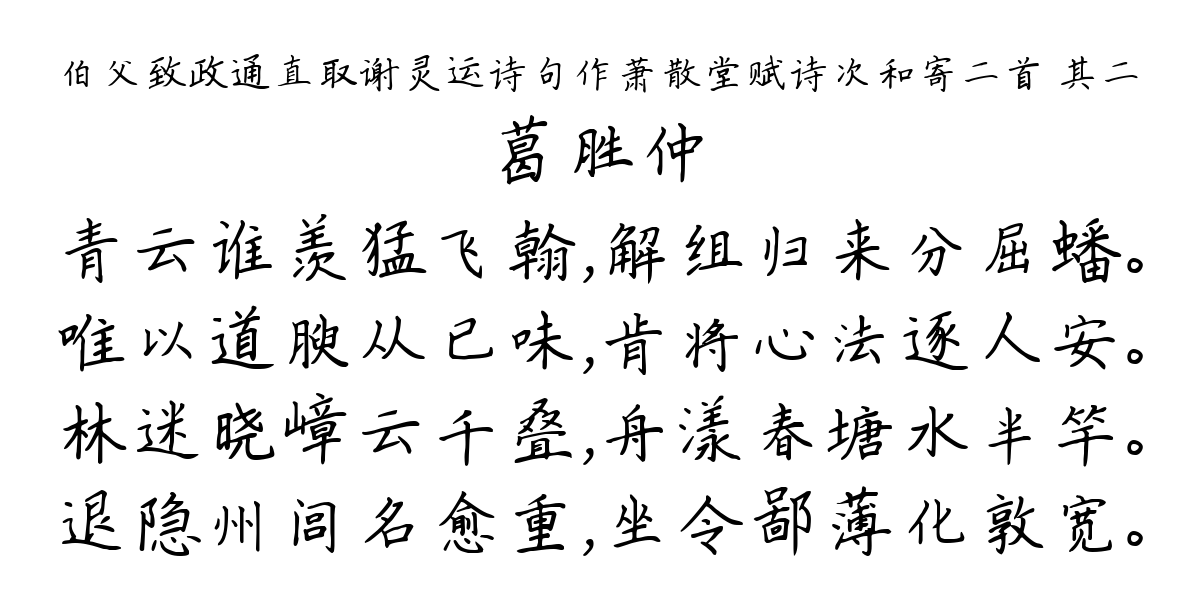 伯父致政通直取谢灵运诗句作萧散堂赋诗次和寄二首 其二
葛胜仲
青云谁羡猛飞翰,解组归来分屈蟠。
唯以道腴从已味,肯将心法逐人安。
林迷晓嶂云千叠,舟漾春塘水半竿。
退隐州闾名愈重,坐令鄙薄化敦宽。